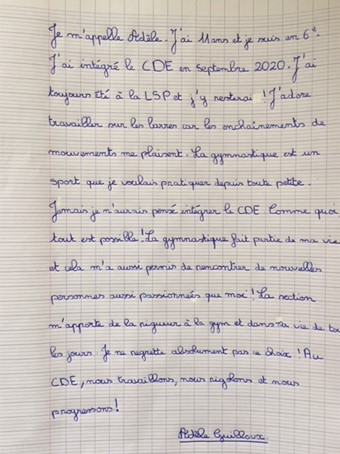 Je m'appelle Adèle. J'ai 11 ans et je suis en 6e.
J'ai intégré le CDE en septembre 2020. J'ai
toujours été à la LSP et j'y resterai ! J'adore
travailler sur les barres car les enchaînements de
mouvements me plaisent. La gymnastique est un
sport que je voulais pratiquer depuis toute petite.
Jamais je n'aurais pensé intégrer le CDE Comme quoi
tout est possible ! La gymnastique fait partie de ma vie
et cela m'a aussi permis de rencontrer de nouvelles
personnes aussi passionnées que moi ! La section
m'apporte de la rigueur à la gym et dans ma vie de tou
les jours. Je ne regrette absolument pas ce choix ! Au
CDE, nous travaillons, nous rigolons et nous
progressons !
Adèle Guilloux.